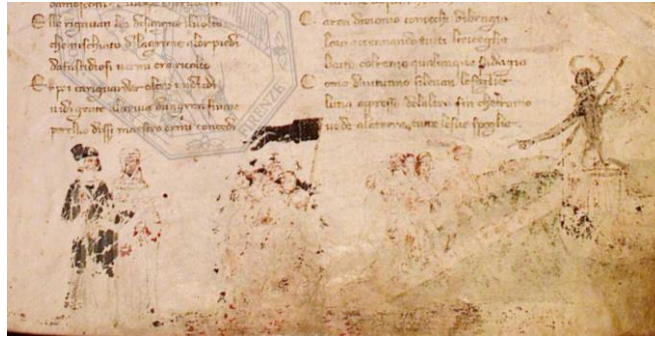 Elle rigauan lor disangue iluolto
che mischiato dilagrime alor piedi
dafastidiosi uermi era ricolto
E poi cariguardar oltre midiedi
uidi gente alariua dungran fiume
perchio dissi maestro ormi concedi
Caron dimonio conochi dibragia
loro accennando tutti leracoglie
batte colremo qualunque sadagia
Come dautunno sileuan lefoglie
luna apresso delaltra fin chelramo
uede alaterra tutte lesue spoglie
FIRENZE